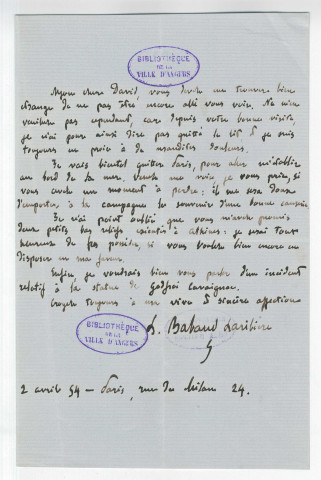 BIBLIOTHÈQUE
DE LA
VILLE D'ANGERS
Mon cher David, vous devez me trouver bien
étrange de ne pas être encore allé vous voir. Ne m'en
veuillez pas cependant, car depuis votre bonne visite,
je n'ai pour ainsi dire pas quitté le lit & je suis
toujours en proie à de maudites douleurs.
Je vais bientôt quitter Paris, pour aller m'établir
au bord de la mer. Venez me voir, je vous prie, si
vous avez un moment à perdre: il me sera doux
d'emporter, à la campagne le souvenir d'une bonne causerie
Je n'ai point oublié que vous m'avez promis
deux petits bas reliefs à Athènes: je serai tous
heureux de les posséder, si vous voulez bien encore en
disposer en ma faveur.
Enfin je voudrais bien vous parler d'un incident
relatif à la statue de Godefroi Cavaignac.
Croyez toujours à ma vive & sincère affection
L. Babaud Laribière
BIBLIOTHÈQUE
DE LA
VILLE D'ANGERS
2 avril 54 — Paris, rue de Milan 24.